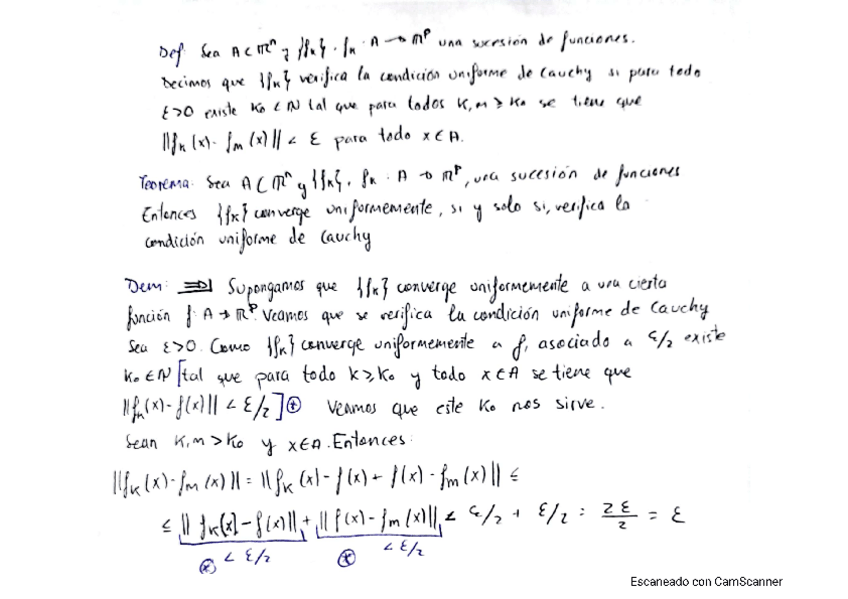 Def: Sea A⊂ℝⁿ y {fₖ}, fₖ: A → ℝᵖ una sucesión de funciones.
Decimos que {fₖ} verifica la condición uniforme de Cauchy si para todo
ε>0 existe k₀∈ℕ tal que para todos k,m ≥ k₀ se tiene que
||fₖ(x) - fₘ(x)|| < ε para todo x∈A.
Teorema: Sea A⊂ℝⁿ y {fₖ}, fₖ: A → ℝᵖ, una sucesión de funciones
Entonces {fₖ} converge uniformemente, si y solo si, verifica la
condición uniforme de Cauchy
Dem: ⇒] Supongamos que {fₖ} converge uniformemente a una cierta
función f: A→ℝᵖ. Veamos que se verifica la condición uniforme de Cauchy
Sea ε>0. Como {fₖ} converge uniformemente a f, asociado a ε/2 existe
k₀∈ℕ [tal que para todo k≥k₀ y todo x∈A se tiene que
||fₖ(x) - f(x)|| < ε/2] ⊛ Veamos que este k₀ nos sirve.
Sean k,m > k₀ y x∈A. Entonces:
||fₖ(x) - fₘ(x)|| = ||fₖ(x) - f(x) + f(x) - fₘ(x)|| ≤
≤ ||fₖ(x) - f(x)|| + ||f(x) - fₘ(x)|| < ε/2 + ε/2 = 2ε/2 = ε
⊛ < ε/2 ⊛ < ε/2
Escaneado con CamScanner